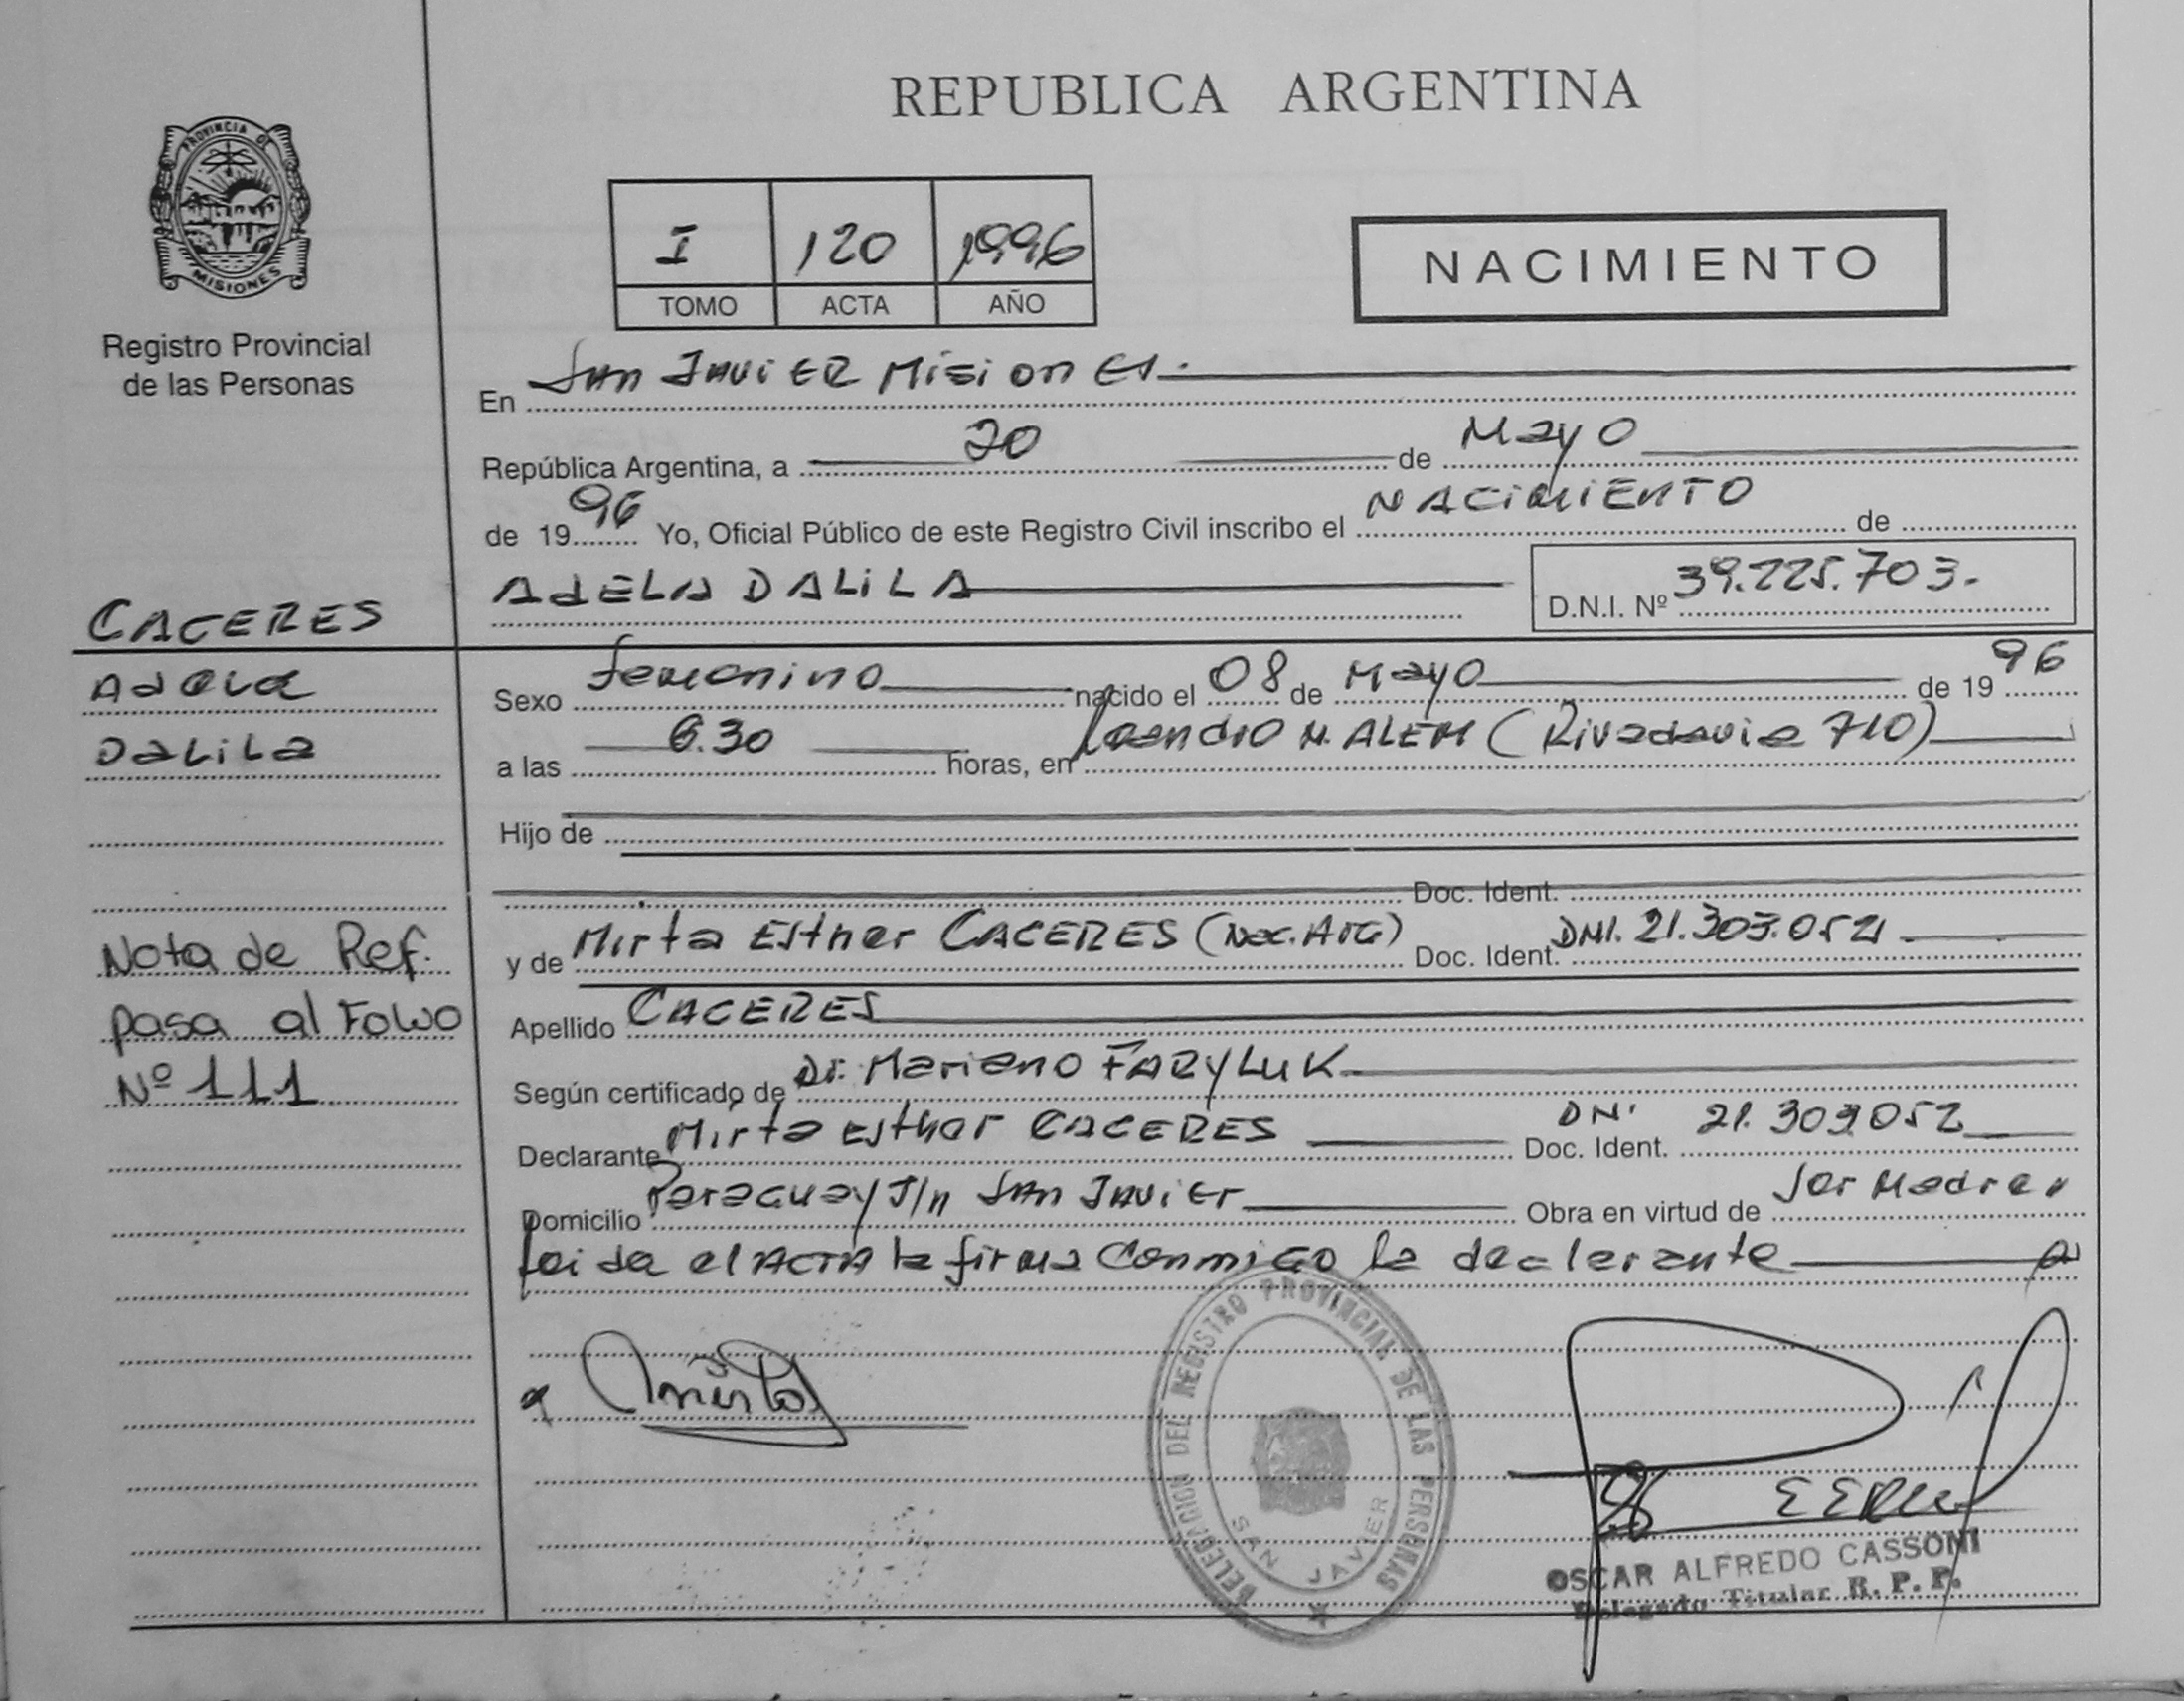 REPUBLICA ARGENTINA
PROVINCIA DE MISIONES
Registro Provincial
de las Personas
I 120 1996
TOMO ACTA AÑO
NACIMIENTO
En San Javier Misiones.
República Argentina, a 20 de Mayo
de 1996 Yo, Oficial Público de este Registro Civil inscribo el NACIMIENTO de
ADELA DALILA D.N.I. Nº 39.225.703.
CACERES
Adela
Dalila
Sexo femenino nacido el 08 de Mayo de 1996
a las 6.30 horas, en Leandro N. ALEM (Rivadavia 710)
Hijo de
Doc. Ident.
y de Mirta Esther CACERES (Nac. Arg) Doc. Ident. DNI. 21.303.052
Apellido CACERES
Según certificado de Dr. Mariano FARYLUK
Declarante Mirta Esther CACERES Doc. Ident. DNI 21.303052
Domicilio Paraguay S/n San Javier Obra en virtud de Ser Madre
Leida el ACTA la firma conmigo la declarante
Nota de Ref.
pasa al Folio
Nº 111
Mirta
DELEGACION DEL REGISTRO PROVINCIAL DE LAS PERSONAS
SAN JAVIER
OSCAR ALFREDO CASSONI
Delegado Titular R. P. P.